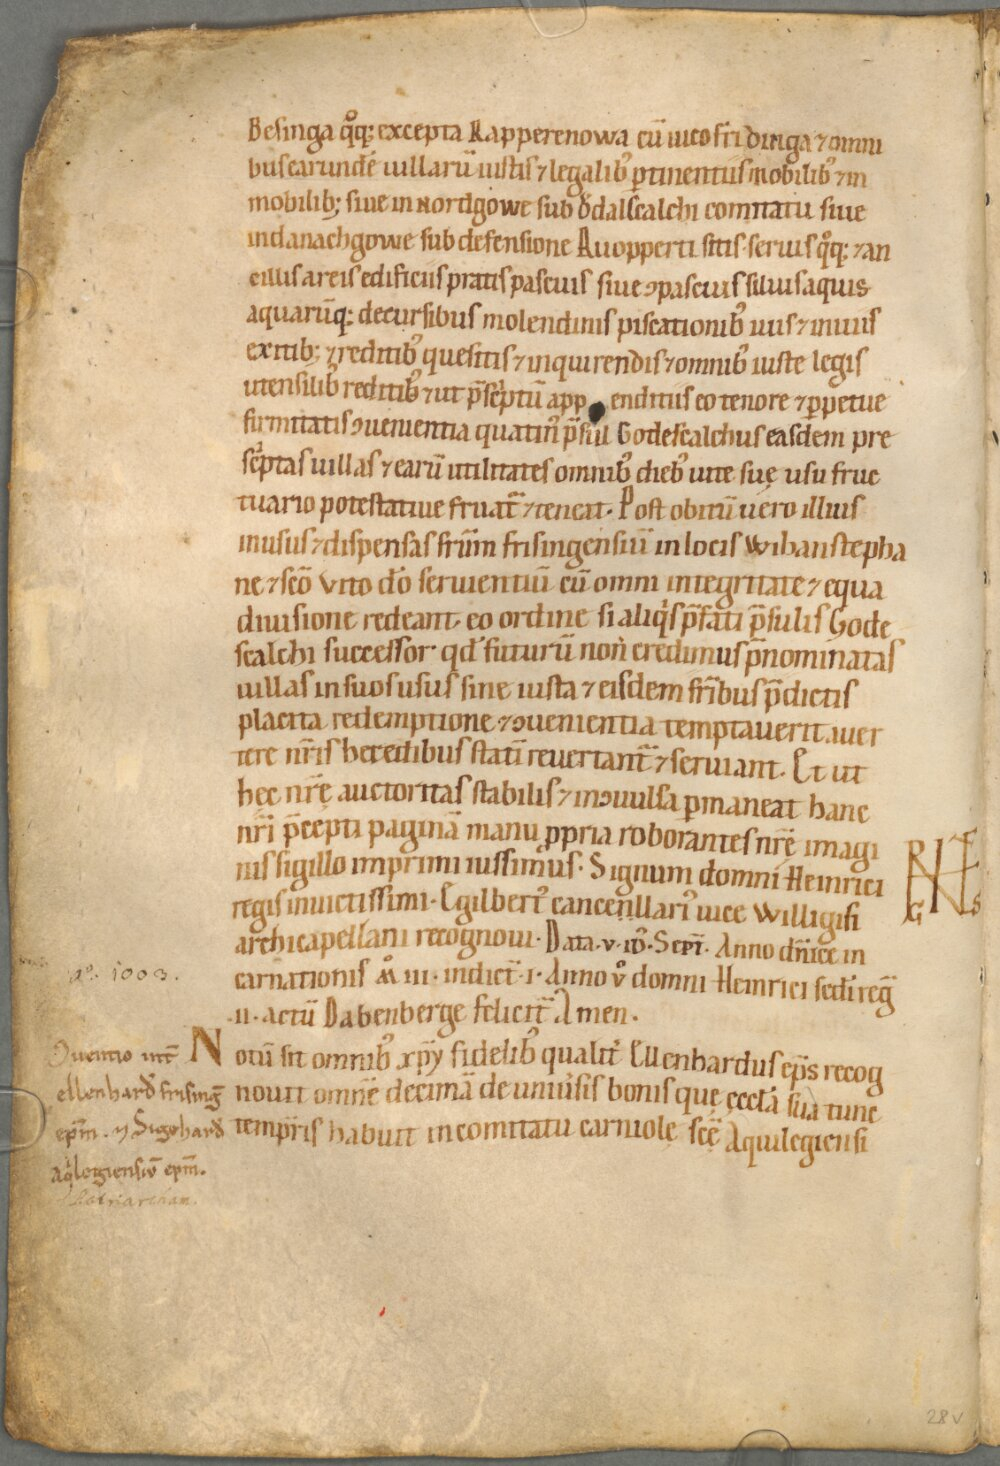 Besinga q̊q; excepta Rapperenowa cū uico fridiriga ⁊ omni
bus earundē uillarū iustis ⁊ legalib᷒ ptinentiis mobilib᷒ ⁊ in
mobilib; siue in Nordgowe sub ỏdalscalchi comitatu siue
in danachgowe sub defensione Ruopperti sitis. seruis q̊q; ⁊ an
cillis areis edificiis pratis pascuis siue ɔpascuis siluis aquis
aquarūq; decursibus molendinis piscationib᷒ uiis ⁊ inuiis
exitib; ⁊ reditib᷒ quesitis ⁊ inquirendis ⁊ omnib᷒ iuste legis
utensilib᷒ reditib᷒ ⁊ ut p̄scͥptū app enditiis eo tenore ⁊ ꝑpetue
firmitatis ɔuenientia quatin᷒ p̄sul Godescalchus easdem pre
scͥptas uillas ⁊ earū utilitates omnib᷒ dieb᷒ uite suę usu fruc
tuario potestatiue fruat̄ ⁊ teneat. Post obitū uero illius
in usus ⁊ dispensas frūm frisingensiū in locis Wihanstepha
ne ⁊ scō Vito dō seruientiū cū omni integritate ⁊ equa
diuisione redeant. eo ordine si aliqͥs p̄fati p̄sulis Gode
scalchi successor. qd̄ futurū non credimus p̄nominatas
uillas in suos usus sine iusta ⁊ eisdem fr̄ibus p̄dictis
placita redemptione ⁊ ɔuenientia temptauerit auer
tere nr̄is heredibus statī reuertant̄ ⁊ seruiant. Et ut
hec nr̄ę auctoritas stabilis ⁊ inɔuulsa ꝑmaneat hanc
nr̄i p̄cepti paginā manu ꝓpria roborantes nr̄ę imagi
nis sigillo imprimi iussimus. Signum domni Heinrici
regis inuictissimi. Egilbert᷒ cancellari᷒ uice Willigisi
archicapellani recognoui. Data. v. id᷒. Sept̄. Anno dn̄ice in
carnationis M̊ iii. indict̄. i. Anno v̊ domni Heinrici sc̄di reḡ
.ii. actū Babenberge felicit̄ Amen.
Aº. 1003.
Notū sit omnib᷒ xp̄i fidelib᷒ qualit̄ Ellenhardus ep̄s recog
nouit omnē decimā de uniu᷒sis bonis que ęcctā sua tunc
temp̄ris habuit in comitatu carniole scē Aquilegiensi
ɔuentio int̄
ellenhard᷒ frising̅
ep̄m. ⁊ Sigehard᷒
aqͥlegiensiū ep̄m.
Patriarcham.
28v